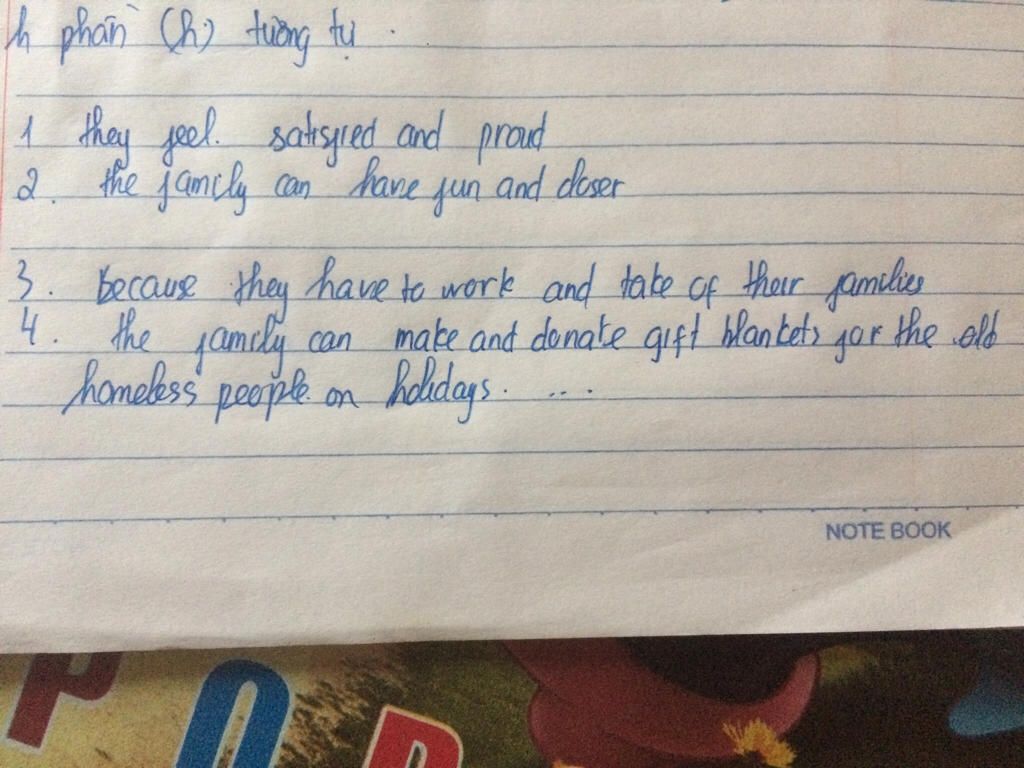 h phần (h) tương tự.
1 they feel. satisfied and proud
2. the family can have fun and closer
3. because they have to work and take of their families
4. the family can make and donate gift blankets for the old
homeless people on holidays. ...
NOTE BOOK
POP